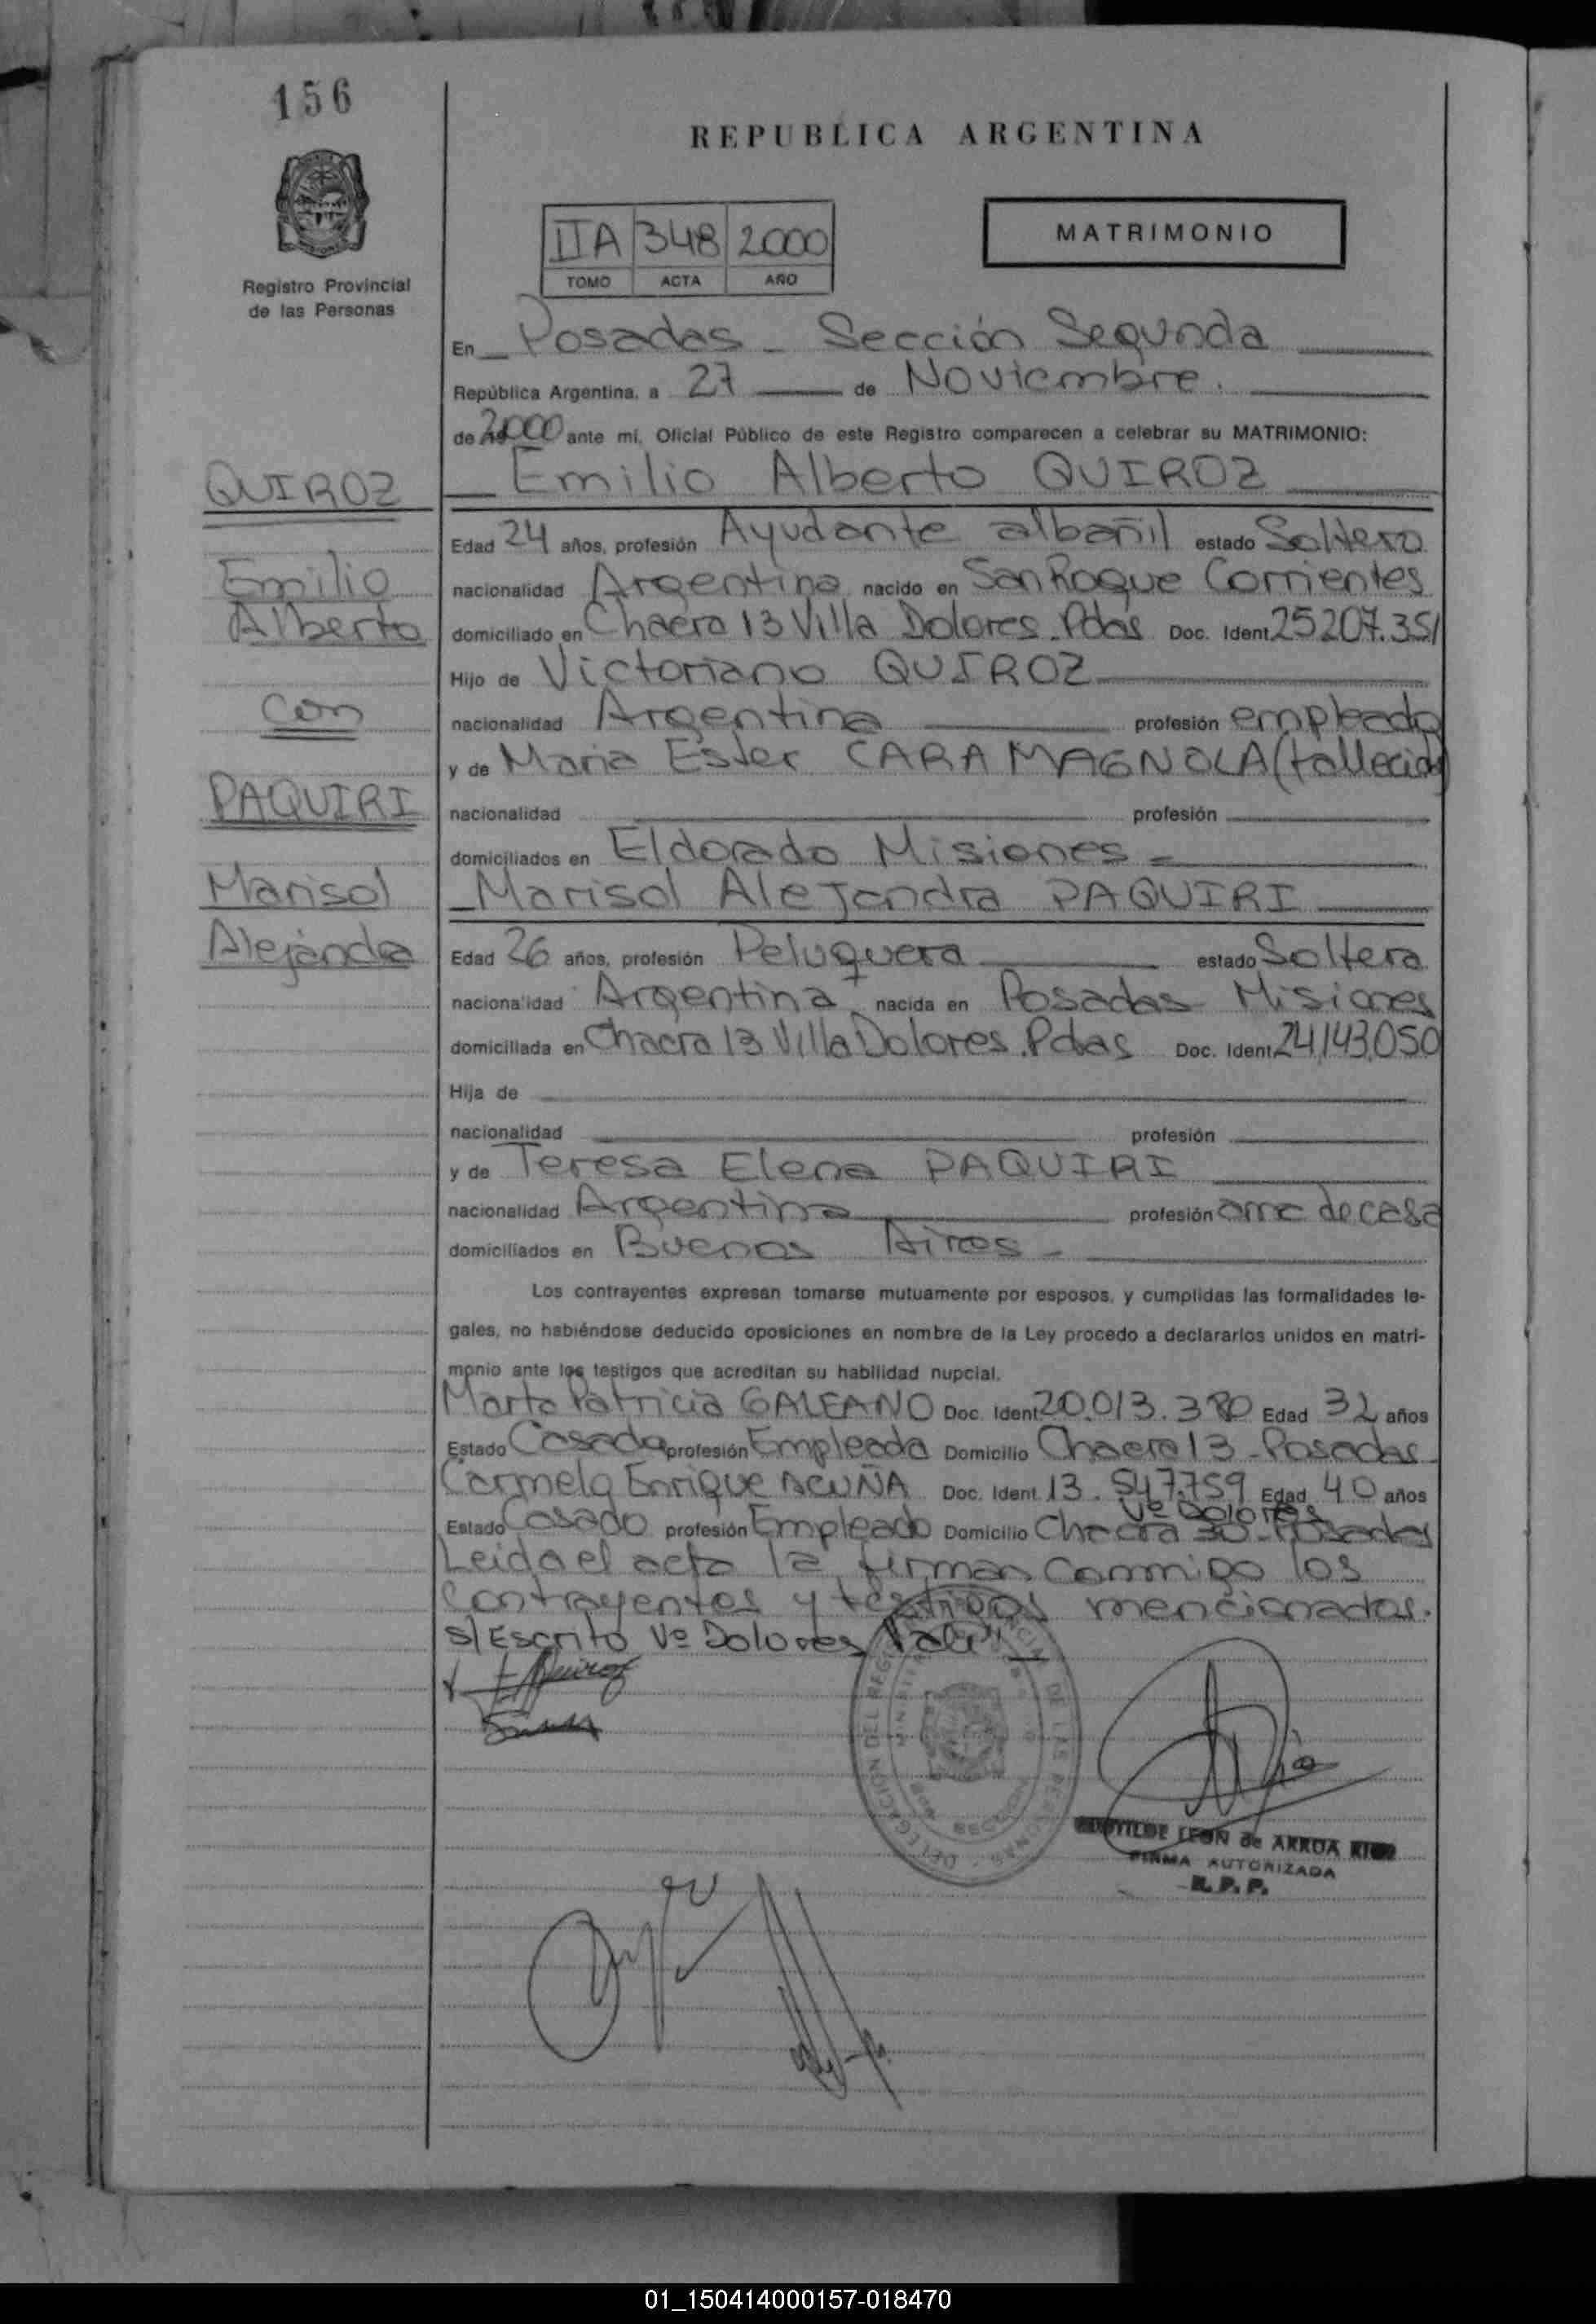 156
REPUBLICA ARGENTINA
IIA 348 2000
TOMO ACTA AÑO
MATRIMONIO
Registro Provincial
de las Personas
En Posadas - Sección Segunda
República Argentina, a 27 de Noviembre.
de 2000 ante mí, Oficial Público de este Registro comparecen a celebrar su MATRIMONIO:
QUIROZ
Emilio Alberto QUIROZ
Edad 24 años, profesión Ayudante albañil estado Soltero
Emilio
nacionalidad Argentina nacido en San Roque Corrientes
Alberto
domiciliado en Chacra 13 Villa Dolores. Pdas Doc. Ident. 25207.351
Hijo de Victoriano QUIROZ
con
nacionalidad Argentina profesión empleado
y de Maria Ester CARAMAGNOLA (fallecida)
PAQUIRI
nacionalidad profesión
domiciliados en Eldorado Misiones =
Marisol
Marisol Alejandra PAQUIRI
Alejandra
Edad 26 años, profesión Peluquera estado Soltera
nacionalidad Argentina nacida en Posadas Misiones
domiciliada en Chacra 13 Villa Dolores. Pdas Doc. Ident. 24.143.050
Hija de
nacionalidad profesión
y de Teresa Elena PAQUIRI
nacionalidad Argentina profesión ama de casa
domiciliados en Buenos Aires -
Los contrayentes expresan tomarse mutuamente por esposos, y cumplidas las formalidades le-
gales, no habiéndose deducido oposiciones en nombre de la Ley procedo a declararlos unidos en matri-
monio ante los testigos que acreditan su habilidad nupcial.
Marta Patricia GALEANO Doc. Ident. 20.013.380 Edad 32 años
Estado Casada profesión Empleada Domicilio Chacra 13 - Posadas
Carmelo Enrique ACUÑA Doc. Ident. 13.547.759 Edad 40 años
Vº Dolores
Estado Casado profesión Empleado Domicilio Chacra 30 - Posadas
Leida el acta la firman conmigo los
contrayentes y testigos mencionados.
s/Escrito Vº Dolores Vale
DELEGACION DEL REGISTRO PROVINCIAL DE LAS PERSONAS
SECCION
LEON de ARRUA
FIRMA AUTORIZADA
R.P.P.
01_150414000157-018470